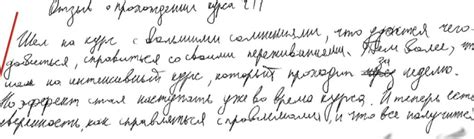 Отзыв о прохождении курса
Шел на курс с большими сомнениями, что удастся чего
добиться, справиться со своими переживаниями. Тем более, т
шел на интенсивный курс, который проходит за неделю.
Но эффект стал наступать уже во время курса. И теперь есть
уверенность, как справляться с проблемами и что все получит